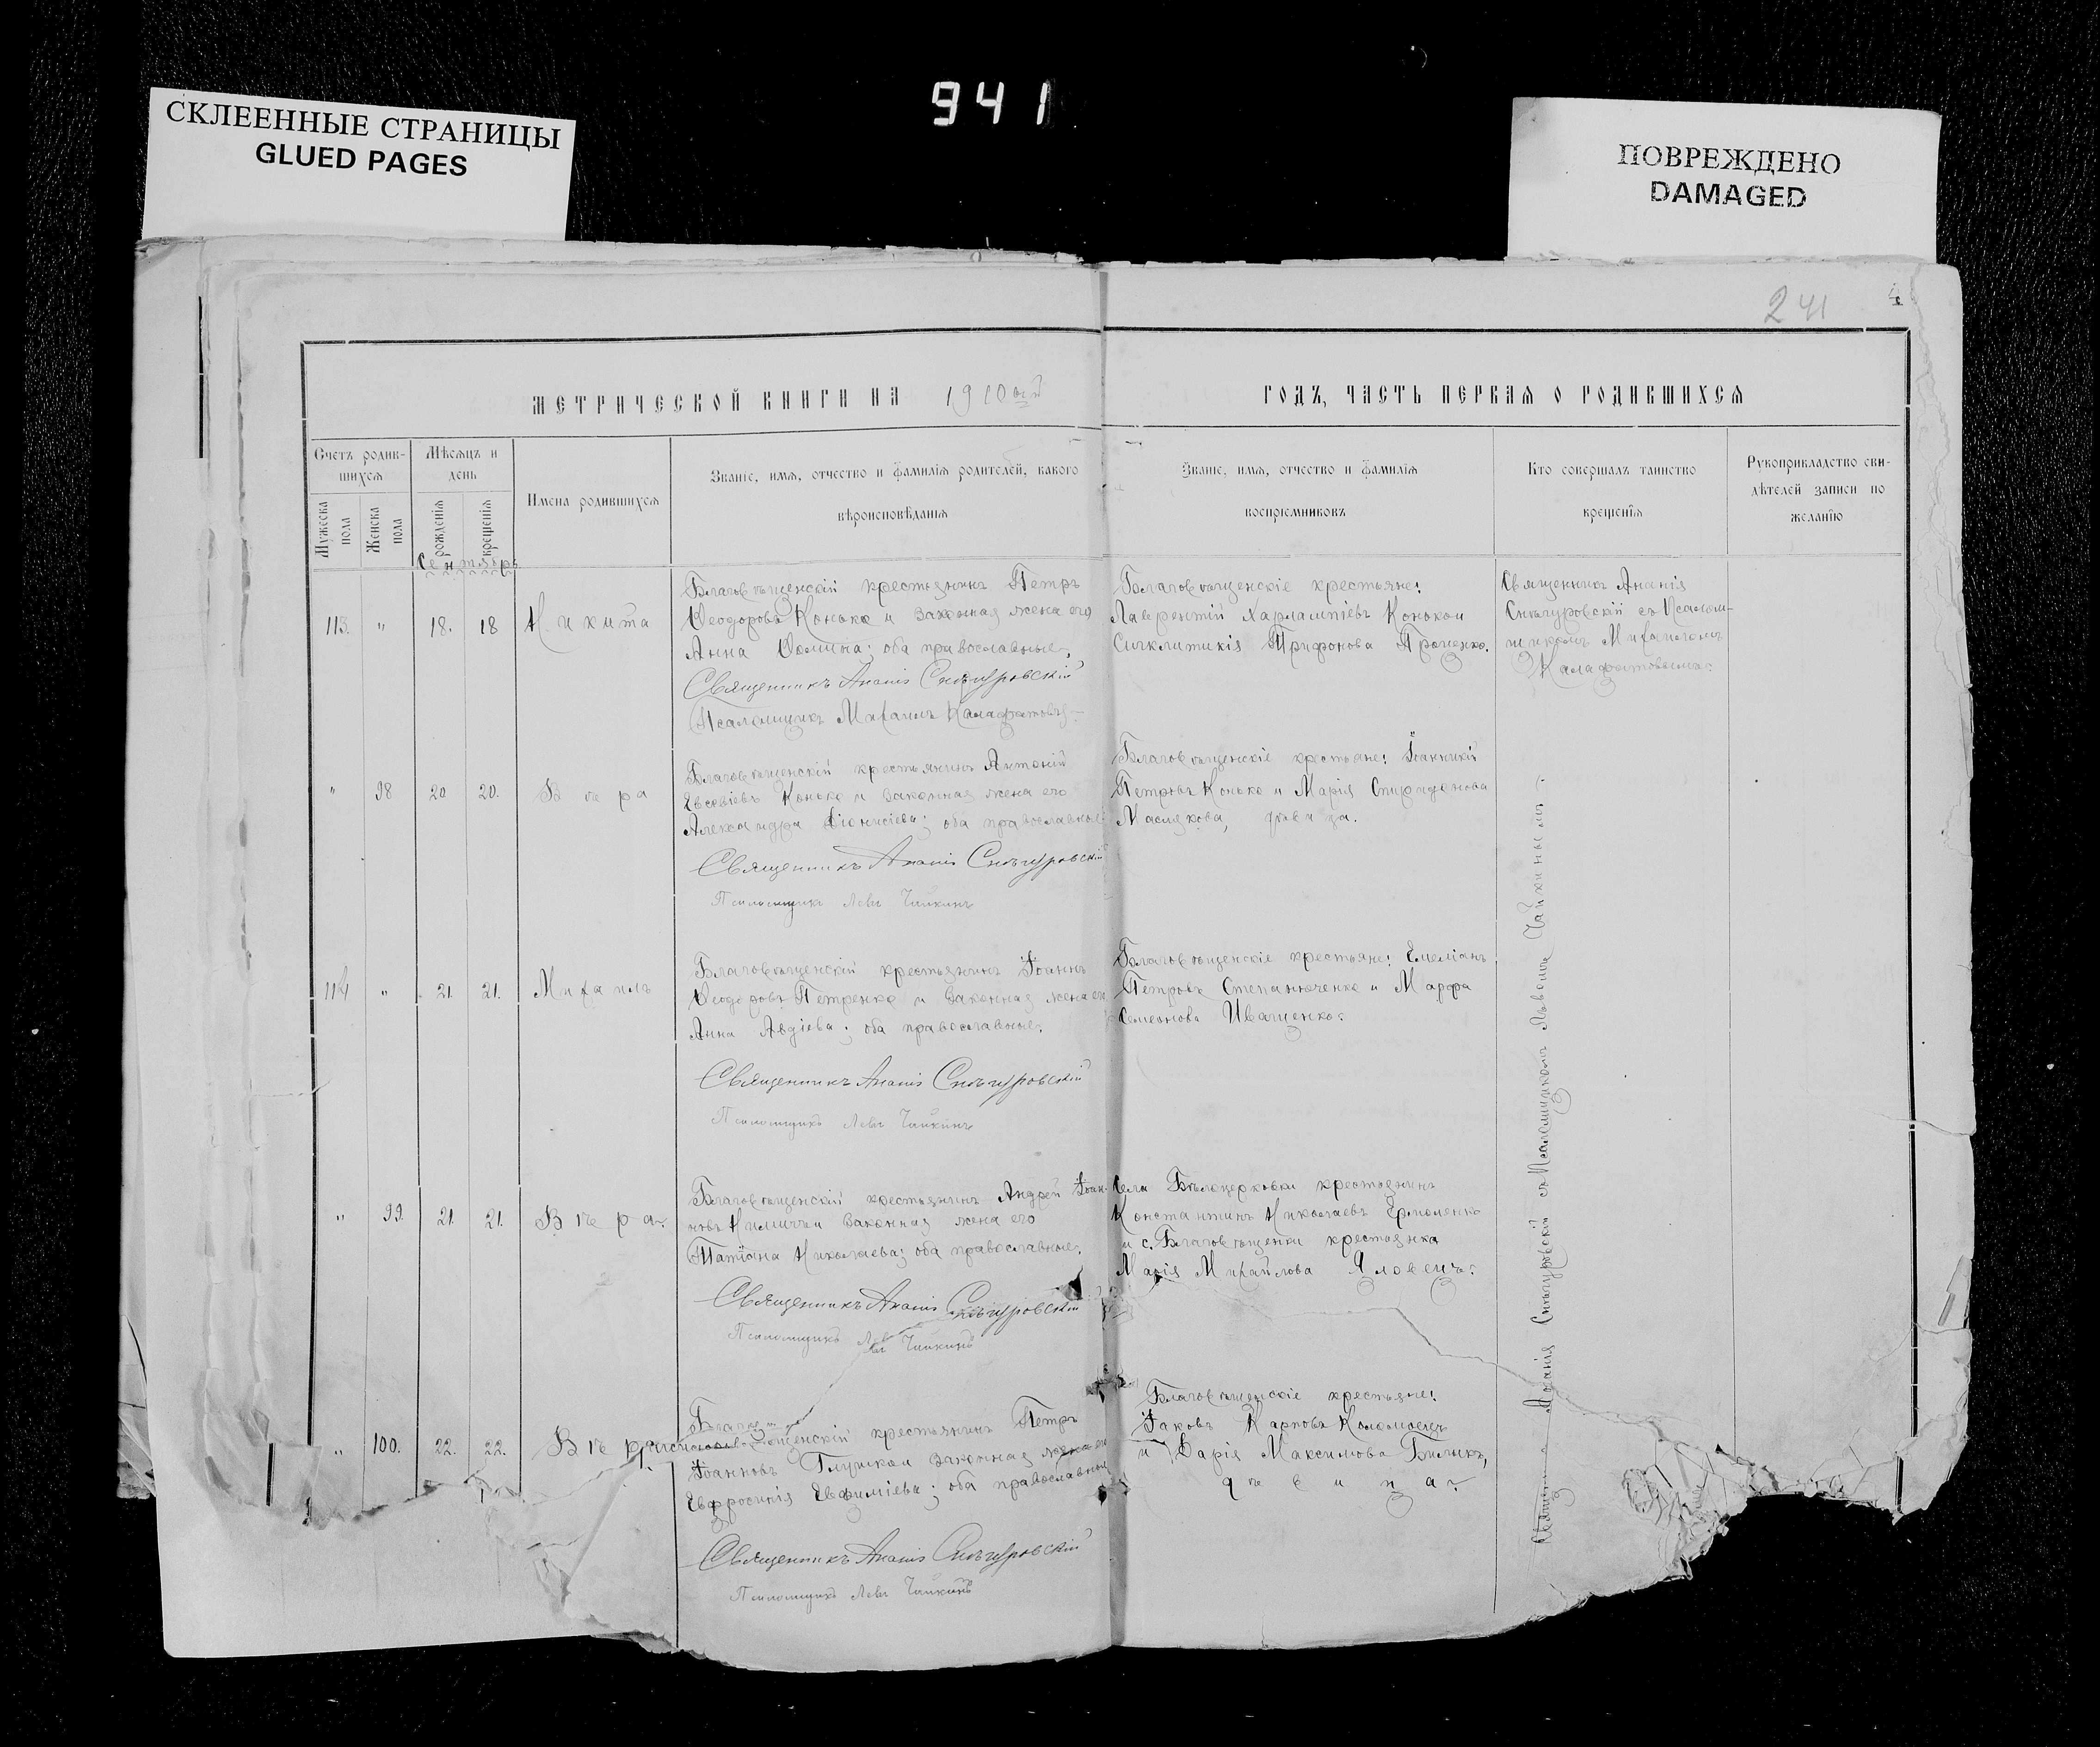 941
СКЛЕЕННЫЕ СТРАНИЦЫ
GLUED PAGES
ПОВРЕЖДЕНО
DAMAGED
241
МЕТРИЧЕСКОЙ КНИГИ НА 1910ый
ГОДЪ, ЧАСТЬ ПЕРВАЯ О РОДИВШИХСЯ
Счетъ родив-
шихся
Мужеска
пола
Женска
пола
Мѣсяцъ и
день
рожденія
крещенія
Имена родившихся
Званіе, имя, отчество и фамилія родителей, какого
вѣроисповѣданія
Званіе, имя, отчество и фамилія
воспріемниковъ
Кто совершалъ таинство
крещенія
Рукоприкладство сви-
дѣтелей записи по
желанію
Сентябрь
113. " 18. 18 Никита
Благовѣщенскій крестьянинъ Петръ
Ѳеодоровъ Конько и законная жена его
Анна Ѳомина; оба православные.
Священникъ Ананія Снѣгуровскій
Псаломщикъ Михаилъ Калафатовъ
Благовѣщенскіе крестьяне:
Лаврентій Харлампіевъ Конько и
Синклитикія Трифонова Проценко.
Священникъ Ананія
Снѣгуровскій съ Псалом-
щикомъ Михаиломъ
Калафатовымъ.
" 98 20 20. Вѣра
Благовѣщенскій крестьянинъ Антоній
Евсевіевъ Конько и законная жена его
Александра Діонисіева; оба православные
Священникъ Ананія Снѣгуровскій
Псаломщикъ Левъ Чайкинъ
Благовѣщенскіе крестьяне: Іоанникій
Петровъ Конько и Марія Спиридонова
Маслюкова, дѣвица.
114 " 21. 21. Михаилъ
Благовѣщенскій крестьянинъ Іоаннъ
Ѳеодоровъ Петренко и законная жена его
Анна Авдіева; оба православные.
Священникъ Ананія Снѣгуровскій
Псаломщикъ Левъ Чайкинъ
Благовѣщенскіе крестьяне: Емеліанъ
Петровъ Степанюченко и Марфа
Семеонова Иващенко.
" 99. 21. 21. Вѣра.
Благовѣщенскій крестьянинъ Андрей Іоан-
новъ и законная жена его
Татіана Николаева; оба православные.
Священникъ Ананія Снѣгуровскій
Псаломщикъ Левъ Чайкинъ
Села Бѣлоцерковки крестьянинъ
Константинъ Николаевъ Ермоленко
и с. Благовѣщенки крестьянка
Марія Михайлова Яловецъ.
" 100. 22. 22. Вѣра
Благовѣщенскій крестьянинъ Петръ
Іоанновъ Глушко и законная жена его
Евфросинія Евфиміева; оба православные
Священникъ Ананія Снѣгуровскій
Псаломщикъ Левъ Чайкинъ
Благовѣщенскіе крестьяне:
Іаковъ Карповъ Коломоецъ
и Дарія Максимова Билыкъ,
дѣвица.
Священникъ Ананія Снѣгуровскій съ Псаломщикомъ Львомъ Чайкинымъ.